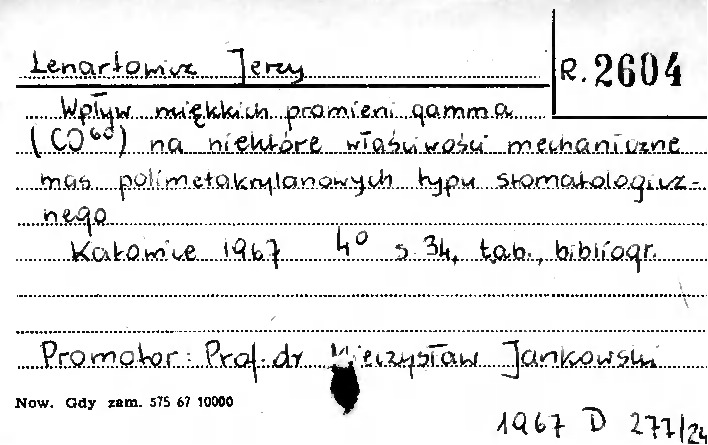 Lenartowicz Jerzy
R. 2604
Wpływ miękkich promieni gamma
(CO⁶⁰) na niektóre właściwości mechaniczne
mas polimetakrylanowych typu stomatologicz-
nego
Katowice 1967 4° s. 34, tab., bibliogr.
Promotor: Prof. dr Mieczysław Jankowski
Now. Gdy zam. 575 67 10000
1967 D 277/24